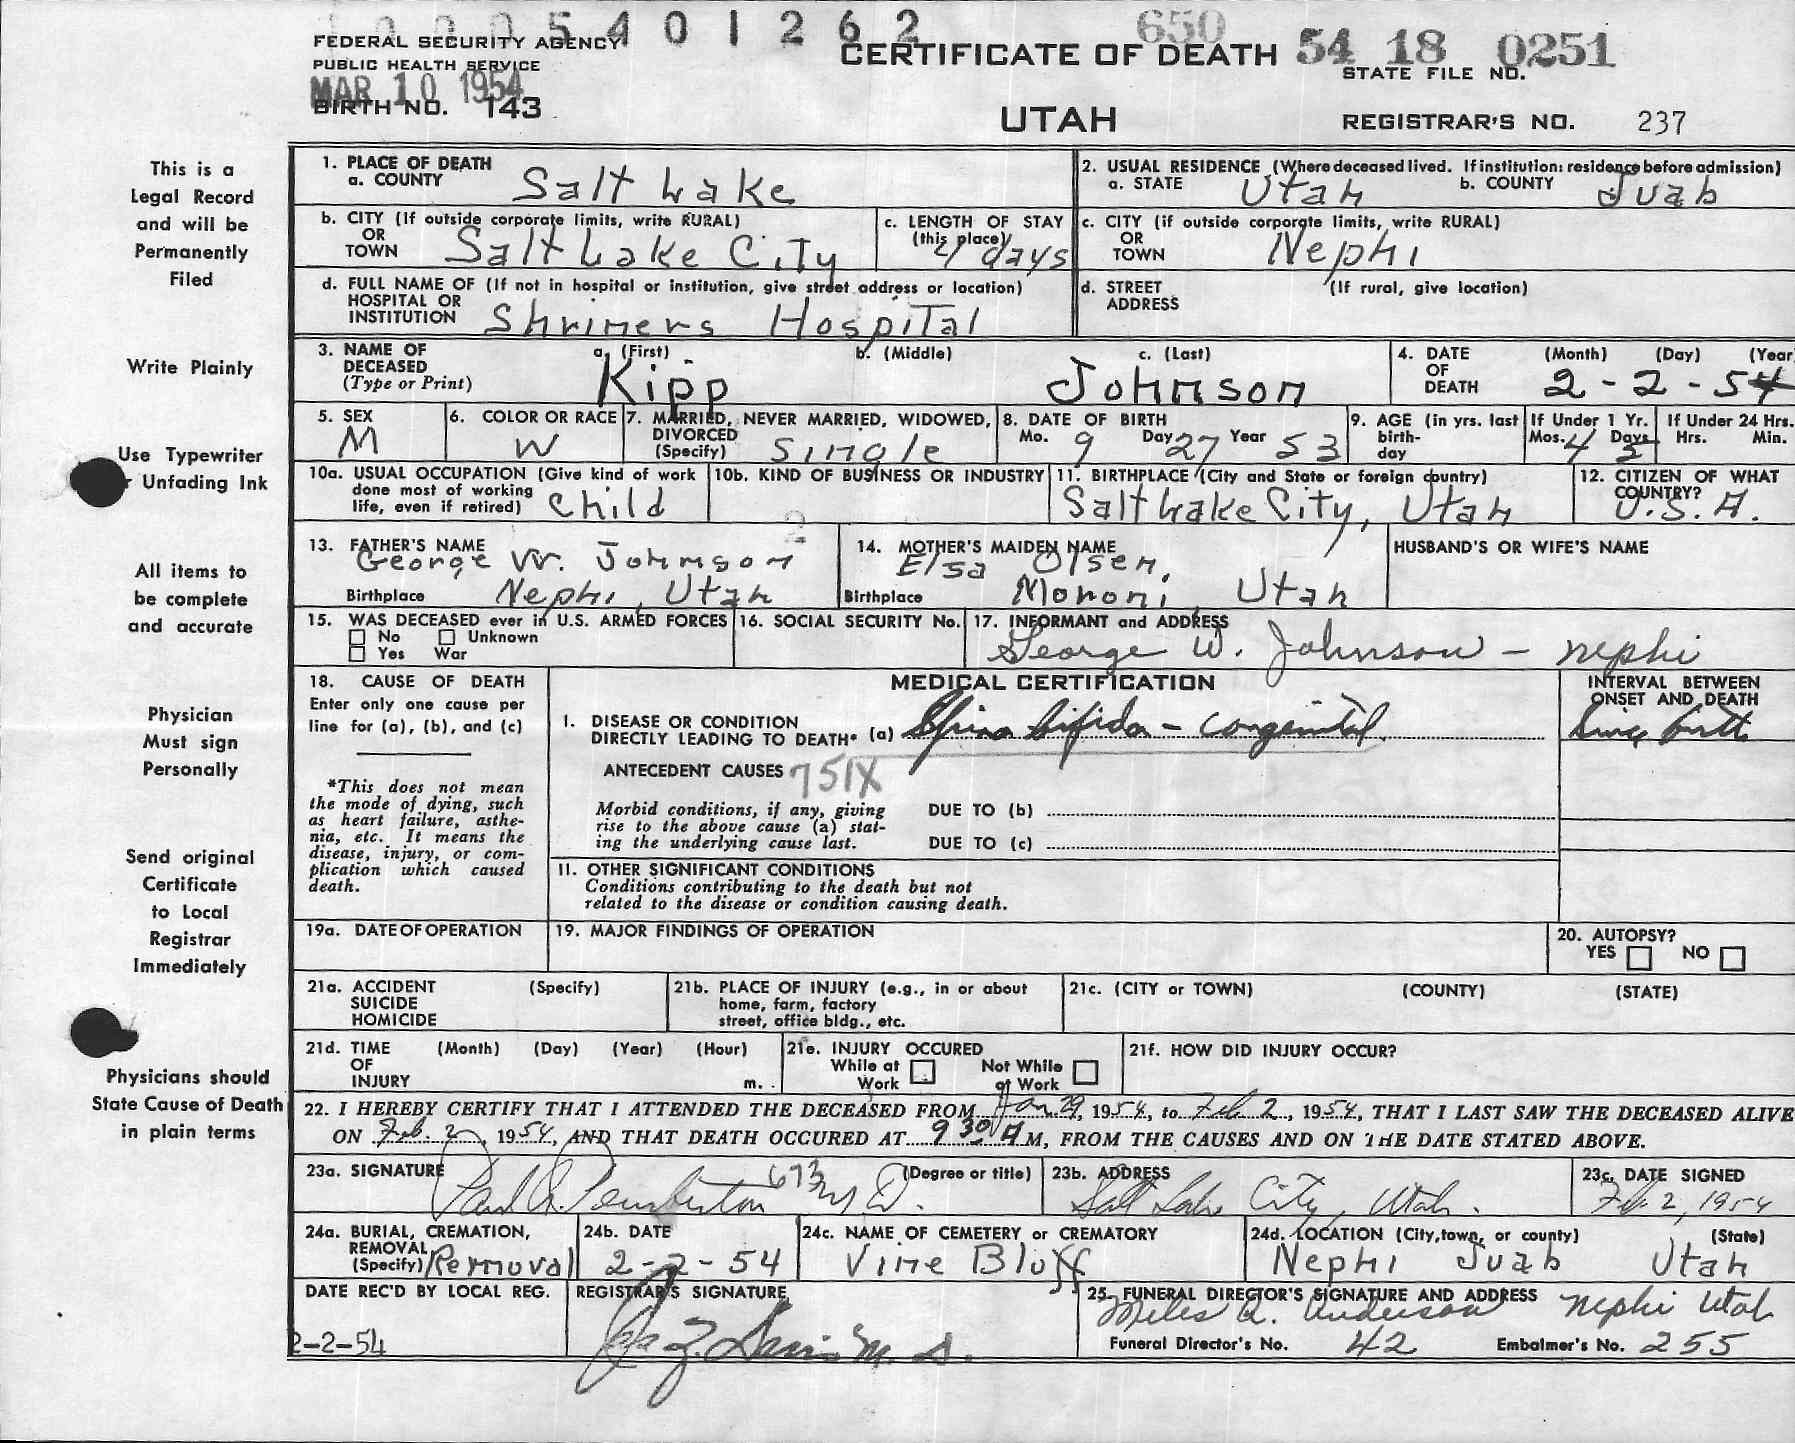 1 0 0 0 5 4 0 1 2 6 2
650
FEDERAL SECURITY AGENCY
PUBLIC HEALTH SERVICE
MAR 10 1954
BIRTH NO. 143
CERTIFICATE OF DEATH
UTAH
54 18 0251
STATE FILE NO.
REGISTRAR'S NO. 237
This is a
Legal Record
and will be
Permanently
Filed
Write Plainly
Use Typewriter
r Unfading Ink
All items to
be complete
and accurate
Physician
Must sign
Personally
Send original
Certificate
to Local
Registrar
Immediately
Physicians should
State Cause of Death
in plain terms
1. PLACE OF DEATH
a. COUNTY Salt Lake
2. USUAL RESIDENCE (Where deceased lived. If institution: residence before admission)
a. STATE Utah b. COUNTY Juab
b. CITY (If outside corporate limits, write RURAL)
OR
TOWN Salt Lake City
c. LENGTH OF STAY
(this place) 4 days
c. CITY (if outside corporate limits, write RURAL)
OR
TOWN Nephi
d. FULL NAME OF (If not in hospital or institution, give street address or location)
HOSPITAL OR
INSTITUTION Shriners Hospital
d. STREET (If rural, give location)
ADDRESS
3. NAME OF DECEASED
(Type or Print)
a. (First) b. (Middle) c. (Last)
Kipp Johnson
4. DATE OF DEATH (Month) (Day) (Year
2-2-54
5. SEX
M
6. COLOR OR RACE
W
7. MARRIED, NEVER MARRIED, WIDOWED,
DIVORCED
(Specify) Single
8. DATE OF BIRTH
Mo. 9 Day 27 Year 53
9. AGE (in yrs. last
birth-
day
If Under 1 Yr.
Mos. 4 Days 5
If Under 24 Hrs.
Hrs. Min.
10a. USUAL OCCUPATION (Give kind of work
done most of working
life, even if retired) Child
10b. KIND OF BUSINESS OR INDUSTRY
11. BIRTHPLACE (City and State or foreign country)
Salt Lake City, Utah
12. CITIZEN OF WHAT
COUNTRY?
U.S.A.
2
13. FATHER'S NAME
George W. Johnson
Birthplace Nephi, Utah
14. MOTHER'S MAIDEN NAME
Elsa Olsen,
Birthplace Moroni, Utah
HUSBAND'S OR WIFE'S NAME
15. WAS DECEASED ever in U.S. ARMED FORCES
No Unknown
Yes War
16. SOCIAL SECURITY No.
17. INFORMANT and ADDRESS
George W. Johnson - Nephi
18. CAUSE OF DEATH
Enter only one cause per
line for (a), (b), and (c)
*This does not mean
the mode of dying, such
as heart failure, asthe-
nia, etc. It means the
disease, injury, or com-
plication which caused
death.
MEDICAL CERTIFICATION
INTERVAL BETWEEN
ONSET AND DEATH
I. DISEASE OR CONDITION
DIRECTLY LEADING TO DEATH* (a) Spina bifida - congenital
Since birth
ANTECEDENT CAUSES 751X
Morbid conditions, if any, giving
rise to the above cause (a) stat-
ing the underlying cause last.
DUE TO (b)
DUE TO (c)
11. OTHER SIGNIFICANT CONDITIONS
Conditions contributing to the death but not
related to the disease or condition causing death.
19a. DATE OF OPERATION
19. MAJOR FINDINGS OF OPERATION
20. AUTOPSY?
YES NO
21a. ACCIDENT (Specify)
SUICIDE
HOMICIDE
21b. PLACE OF INJURY (e.g., in or about
home, farm, factory
street, office bldg., etc.
21c. (CITY or TOWN) (COUNTY) (STATE)
21d. TIME (Month) (Day) (Year) (Hour)
OF
INJURY m.
21e. INJURY OCCURED
While at Work Not While at Work
21f. HOW DID INJURY OCCUR?
22. I HEREBY CERTIFY THAT I ATTENDED THE DECEASED FROM Jan 29, 1954, to Feb 2, 1954, THAT I LAST SAW THE DECEASED ALIVE
ON Feb. 2, 1954, AND THAT DEATH OCCURED AT 9 30 A M, FROM THE CAUSES AND ON THE DATE STATED ABOVE.
23a. SIGNATURE (Degree or title)
Paul A. Pemberton 673 M.D.
23b. ADDRESS
Salt Lake City, Utah.
23c. DATE SIGNED
Feb. 2, 1954
24a. BURIAL, CREMATION,
REMOVAL
(Specify) Removal
24b. DATE
2-2-54
24c. NAME OF CEMETERY or CREMATORY
Vine Bluff
24d. LOCATION (City, town, or county) (State)
Nephi Juab Utah
DATE REC'D BY LOCAL REG.
2-2-54
REGISTRAR'S SIGNATURE
M.D.
25. FUNERAL DIRECTOR'S SIGNATURE AND ADDRESS
Miles A. Anderson Nephi Utah
Funeral Director's No. 42 Embalmer's No. 255